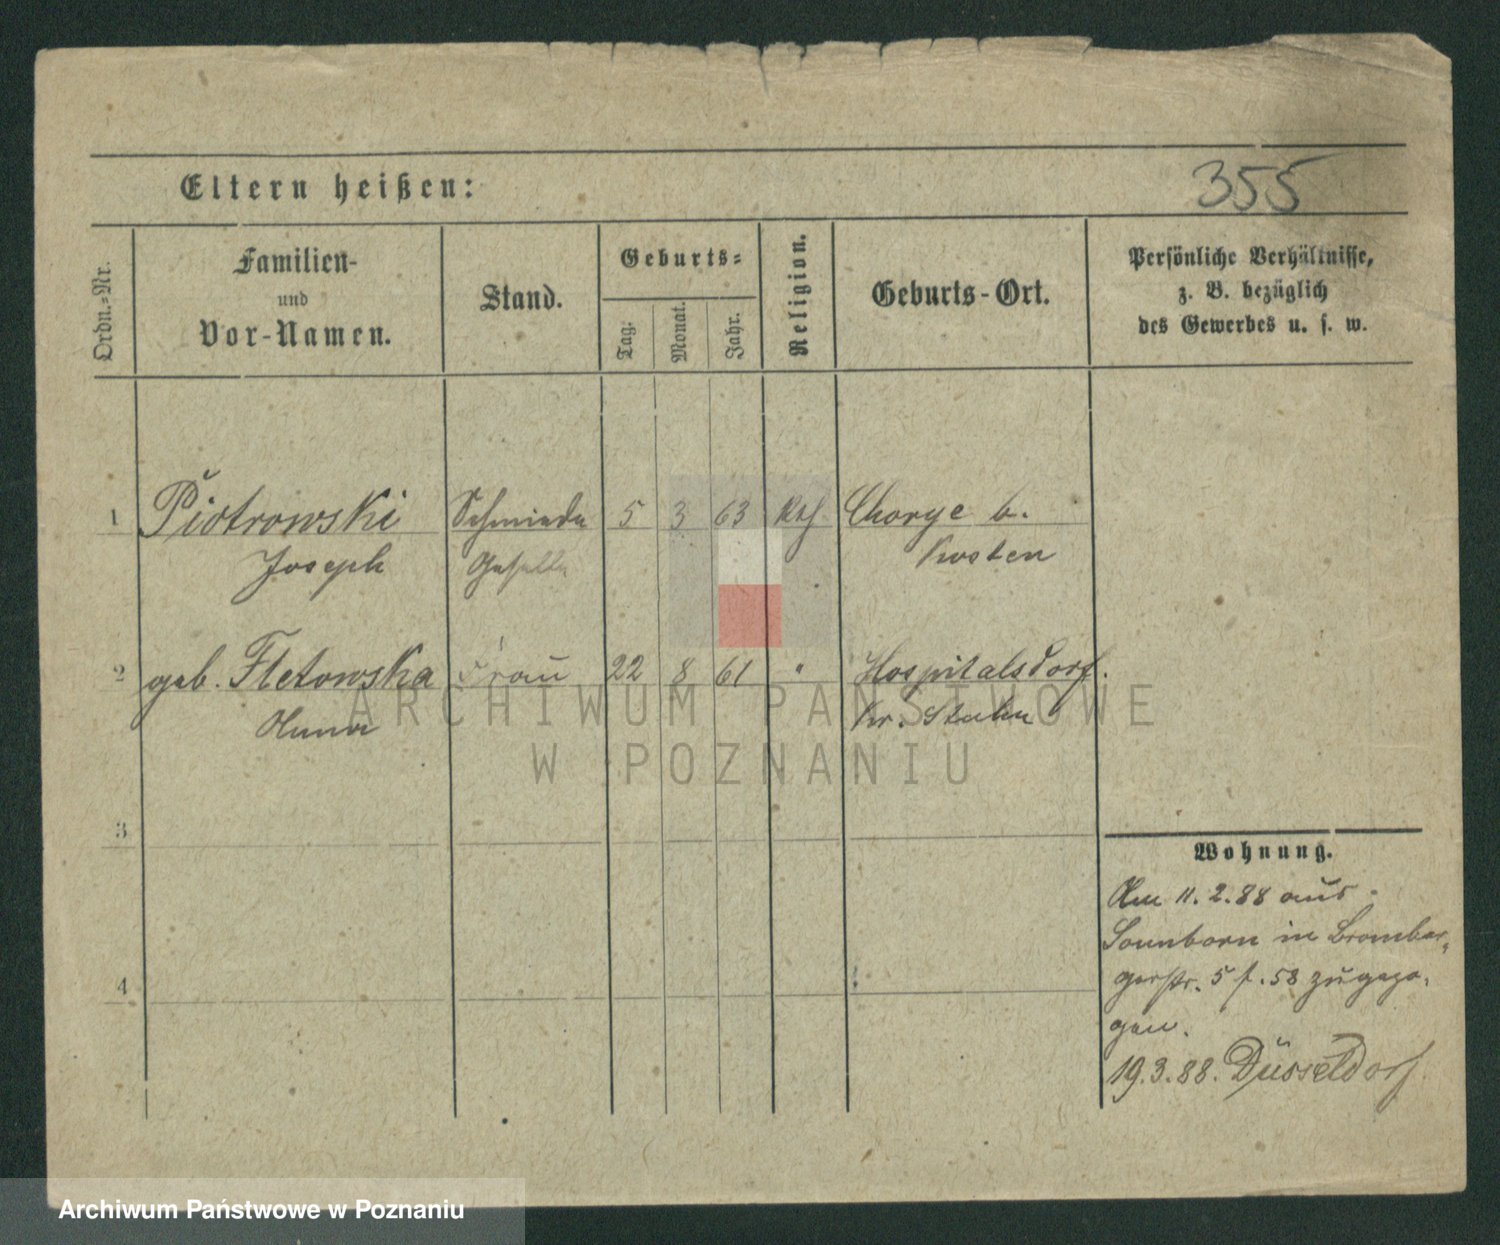 355
Eltern heißen:
Ordn.-Nr.
Familien-
und
Vor-Namen.
Stand.
Geburts-
Tag.
Monat.
Jahr.
Religion.
Geburts-Ort.
Persönliche Verhältnisse,
z. B. bezüglich
des Gewerbes u. s. w.
1 Piotrowski Schmiede 5 3 63 Kth. Chorye b.
Joseph Geselle Kosten
2 geb. Fletowska Frau 22 8 61 " Hospitalsdorf.
Anna Kr. Stuhm
3
4
Wohnung.
Am 11.2.88 aus
Sonnborn in Bromber-
gerstr. 5 f. 58 zugezo-
gen.
19.3.88. Düsseldorf
ARCHIWUM PAŃSTWOWE
W POZNANIU
Archiwum Państwowe w Poznaniu